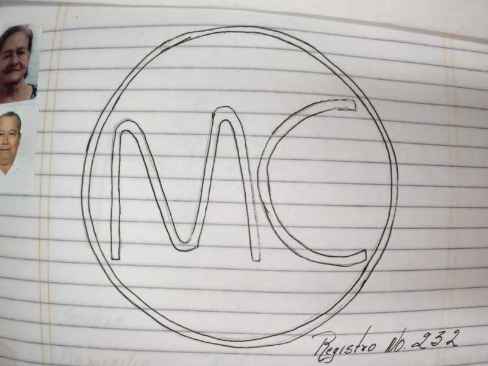 MC
Registro No. 232